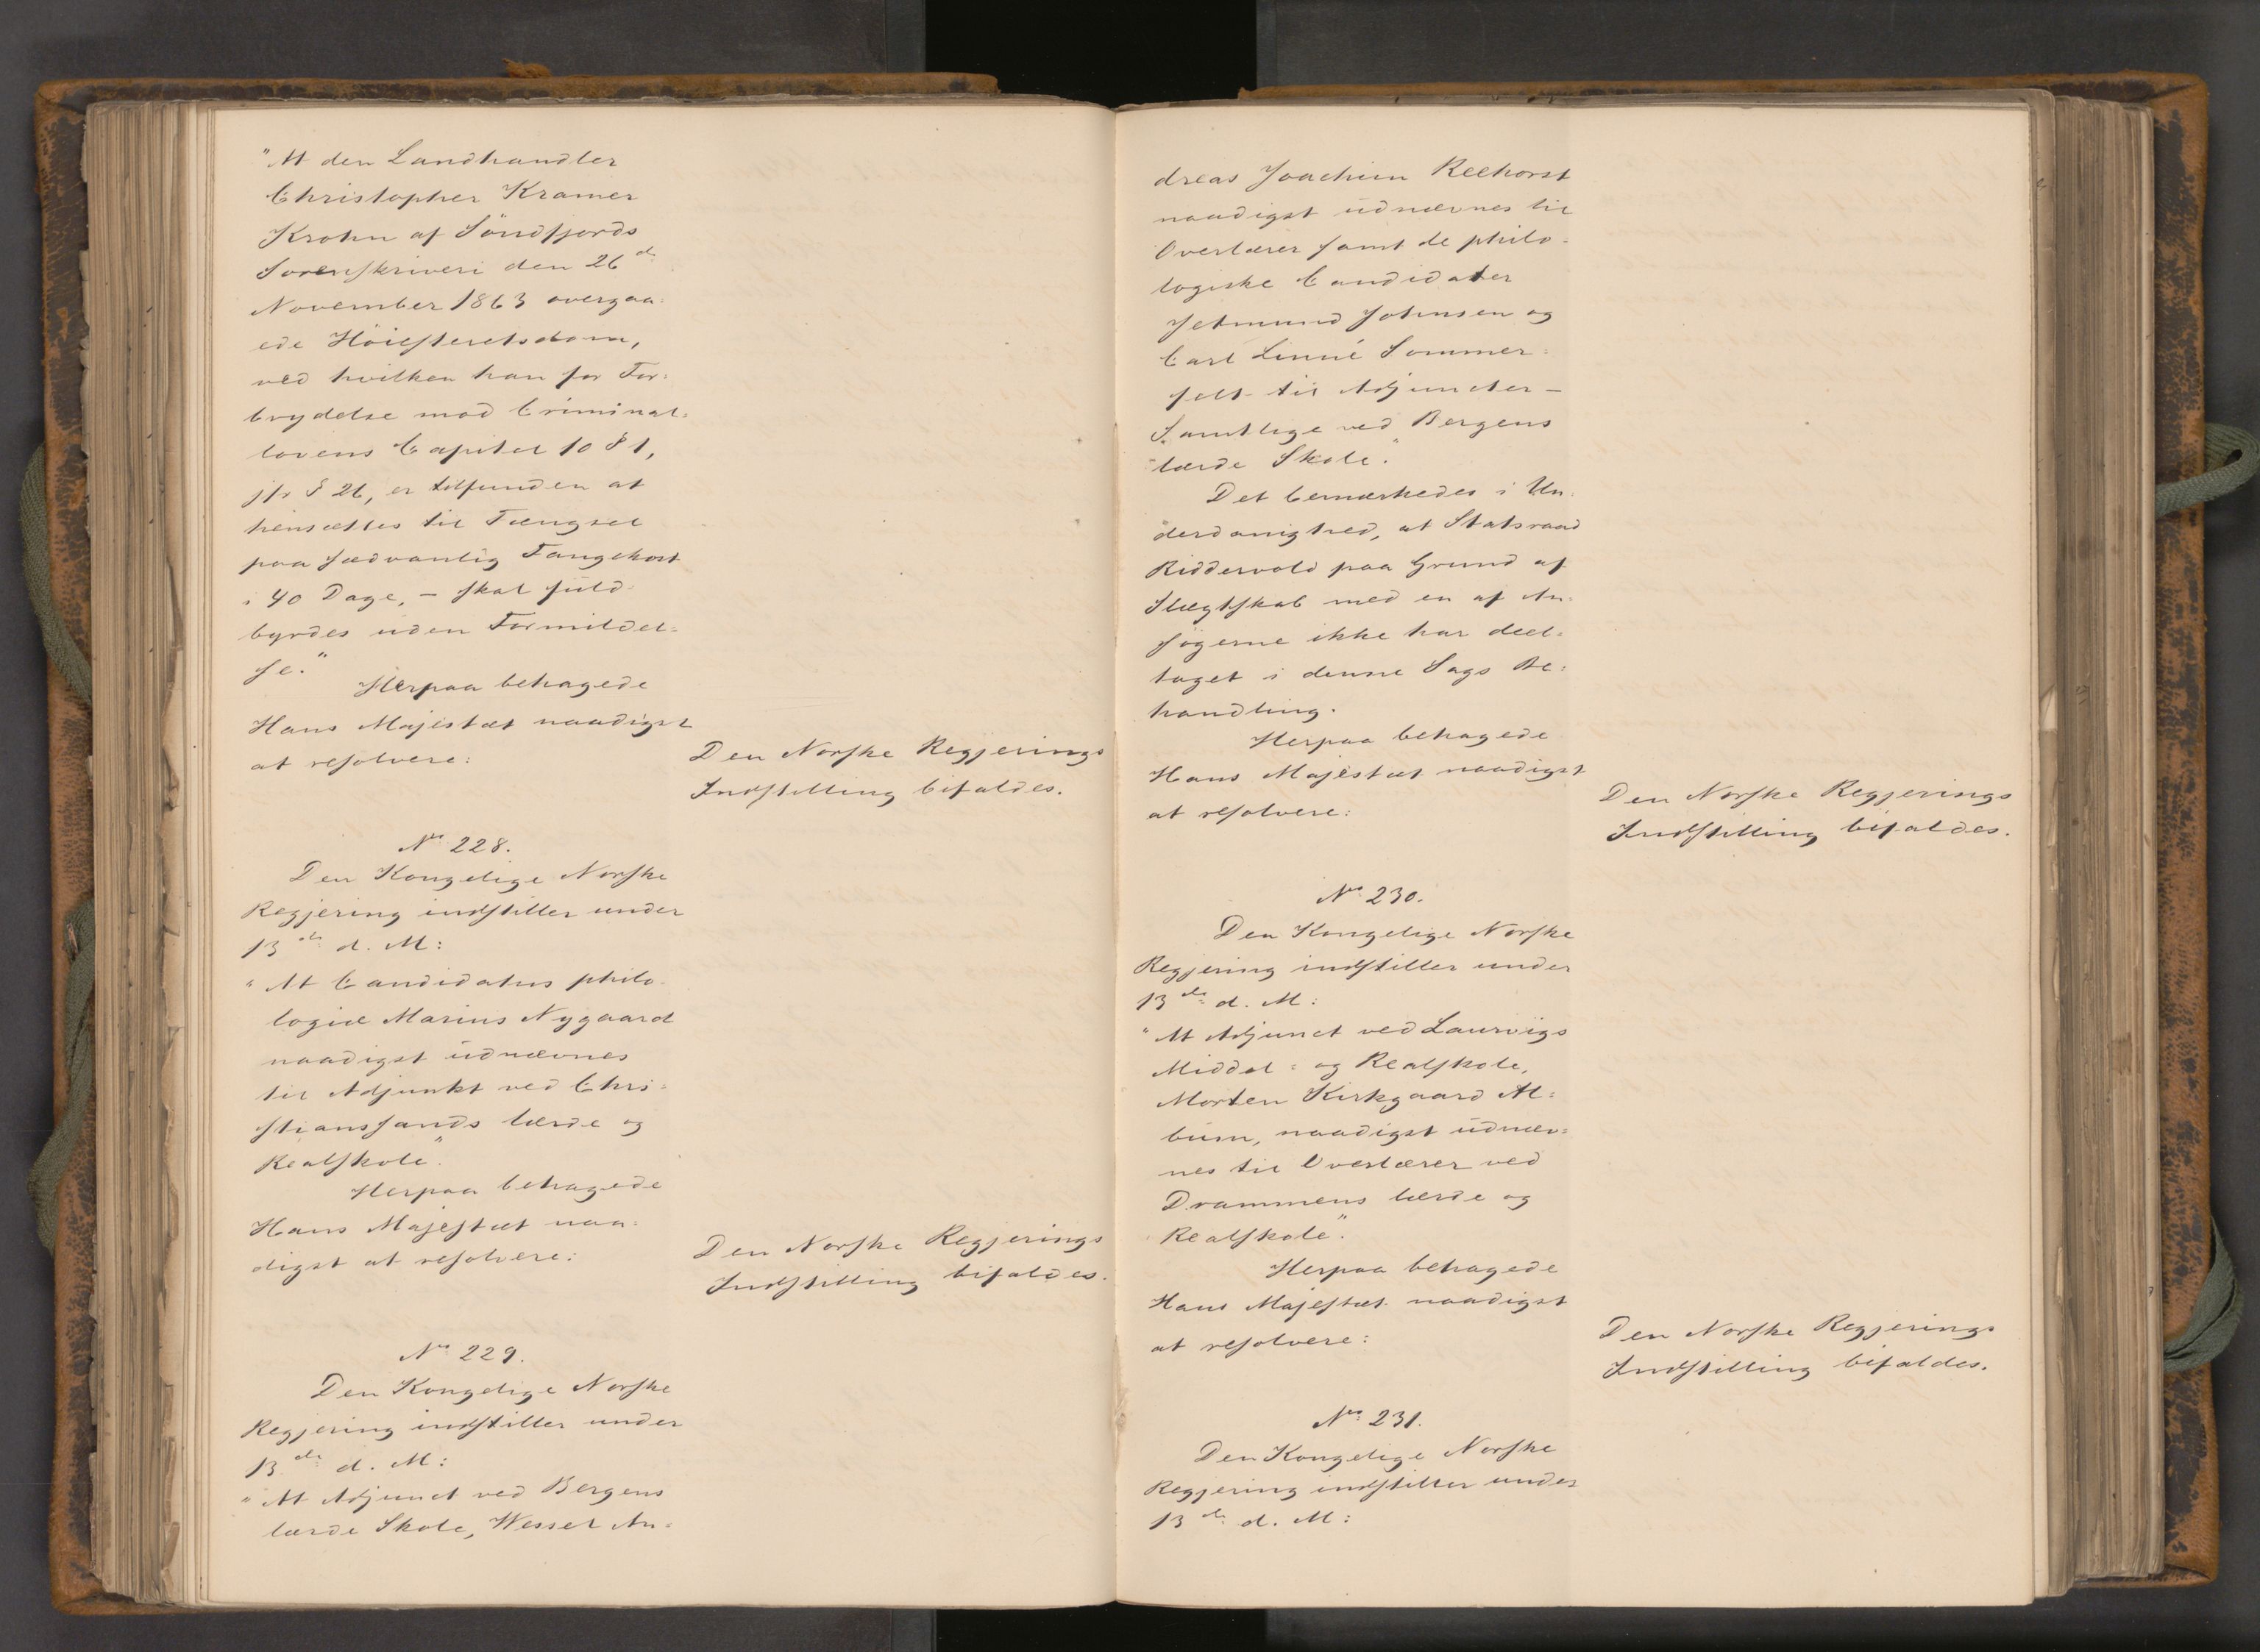 "At den Landhandler
Christopher Kramer
Krohn af Söndfjords
Sorenskriveri den 26de
November 1863 overgaa-
ede Höiesteretsdom,
ved hvilken han for For-
brydelse mod Criminal-
lovens Capitel 10 § 1,
jfr § 26, er tilfunden at
hensættes til Fængsel
paa sædvanlig Fangekost
i 40 Dage, – skal fuld-
byrdes uden Formildel-
se."
Herpaa behagede
Hans Majestæt naadigst
at resolvere:
Den Norske Regjerings
Indstilling bifaldes.
No 228.
Den Kongelige Norske
Regjering indstiller under
13de d. M:
"At Candidatus philo-
logiæ Marius Nygaard
naadigst udnævnes
til Adjunkt ved Chri-
stianssands lærde og
Realskole".
Herpaa behagede
Hans Majestæt naa-
digst at resolvere:
Den Norske Regjerings
Indstilling bifaldes.
No 229.
Den Kongelige Norske
Regjering indstiller under
13de d. M:
"At Adjunct ved Bergens
lærde Skole, Wessel An-
dreas Joachim Reehorst
naadigst udnævnes til
Overlærer samt de philo-
logiske Candidater
Jetmund Johnsen og
Carl Linné Sommer-
felt til Adjuncter –
Samtlige ved Bergens
lærde Skole".
Det bemærkedes i Un-
derdanighed, at Statsraad
Riddervold paa Grund af
Slægtskab med en af An-
søgerne ikke har deel-
taget i denne Sags Be-
handling.
Herpaa behagede
Hans Majestæt naadigst
at resolvere:
Den Norske Regjerings
Indstilling bifaldes.
No 230.
Den Kongelige Norske
Regjering indstiller under
13de d. M:
"At Adjunct ved Laurvigs
Middel- og Realskole,
Morten Kirkgaard Al-
bum, naadigst udnæv-
nes til Overlærer ved
Drammens lærde og
Realskole".
Herpaa behagede
Hans Majestæt naadigst
at resolvere:
Den Norske Regjerings
Indstilling bifaldes.
No 231.
Den Kongelige Norske
Regjering indstiller under
13de d. M: